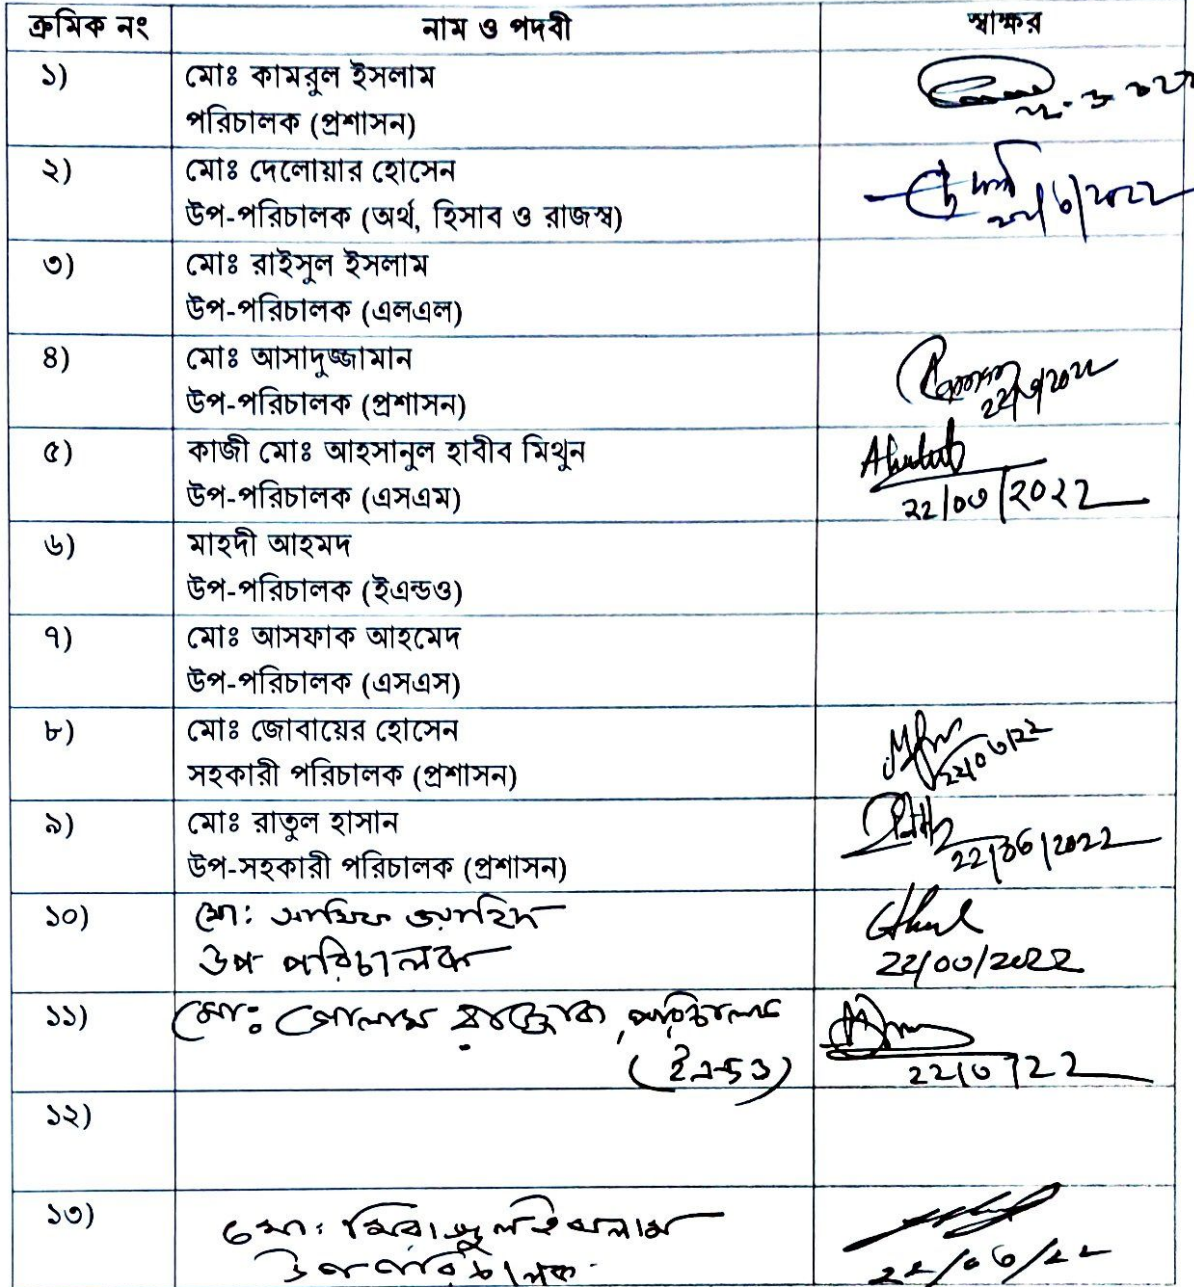 ক্রমিক নং নাম ও পদবী স্বাক্ষর
১) মোঃ কামরুল ইসলাম
পরিচালক (প্রশাসন)
২) মোঃ দেলোয়ার হোসেন
উপ-পরিচালক (অর্থ, হিসাব ও রাজস্ব)
৩) মোঃ রাইসুল ইসলাম
উপ-পরিচালক (এলএল)
৪) মোঃ আসাদুজ্জামান
উপ-পরিচালক (প্রশাসন)
৫) কাজী মোঃ আহসানুল হাবীব মিথুন
উপ-পরিচালক (এসএম)
22/০৩/2022
৬) মাহদী আহমদ
উপ-পরিচালক (ইএন্ডও)
৭) মোঃ আসফাক আহমেদ
উপ-পরিচালক (এসএস)
৮) মোঃ জোবায়ের হোসেন
সহকারী পরিচালক (প্রশাসন)
৯) মোঃ রাতুল হাসান
উপ-সহকারী পরিচালক (প্রশাসন)
১০) মো:
উপ পরিচালক 22/০৩/2022
১১) মো: গোলাম পরিচালক
(ইএন্ডও)
১২)
১৩) মো: মিরাজুল ইসলাম
উপপরিচালক